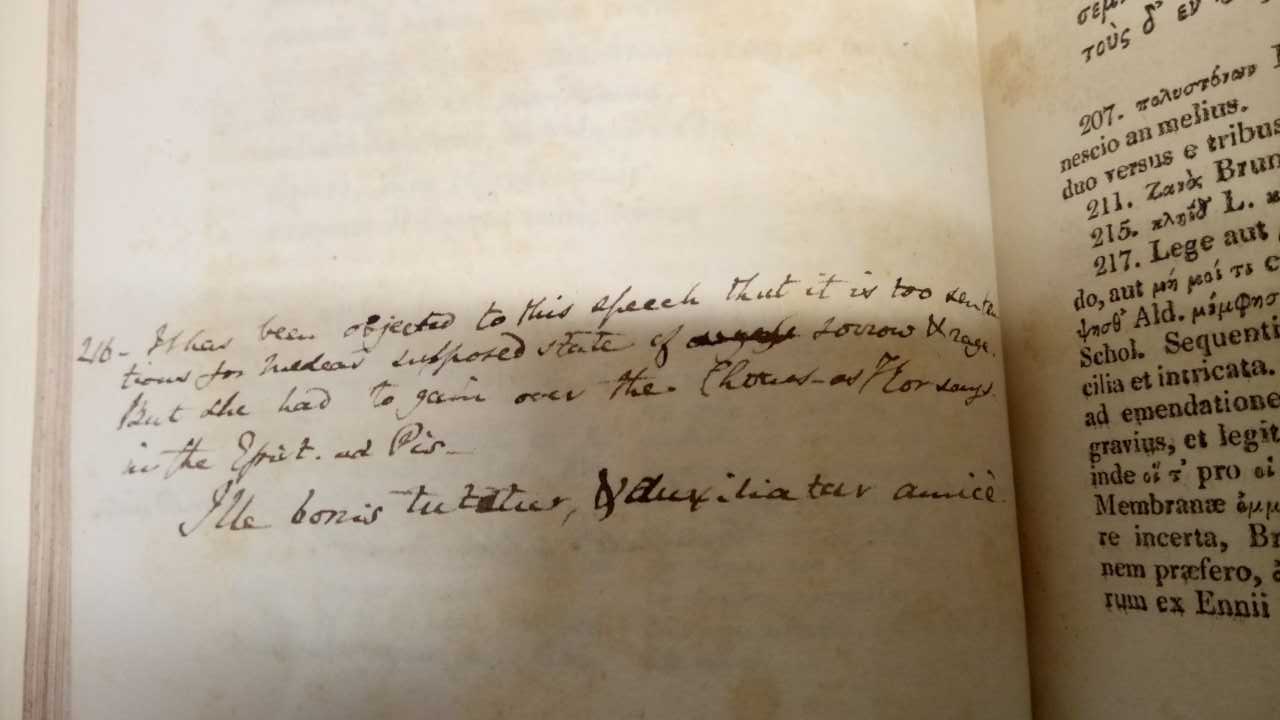 216 - It has been objected to this speech that it is too senten
tious for Medeas supposed state of sorrow & rage.
But she had to gain over the Chorus - as Hor says
in the Epist. ad Pis -
Ille bonis tutatur, & auxiliatur amicè
τοὺς δ' ἐν
207. πολυστόνων
nescio an melius.
duo versus e tribus
211. Ζανὸς Brun
215. κλῇδ' L.
217. Lege aut
do, aut μή μοί τι c
Ald. μέμφησ
Schol. Sequenti
cilia et intricata.
ad emendatione
gravius, et legit
inde οἵ τ' pro οἱ
Membranæ ὀμμ
re incerta, Br
nem præfero,
rum ex Ennii